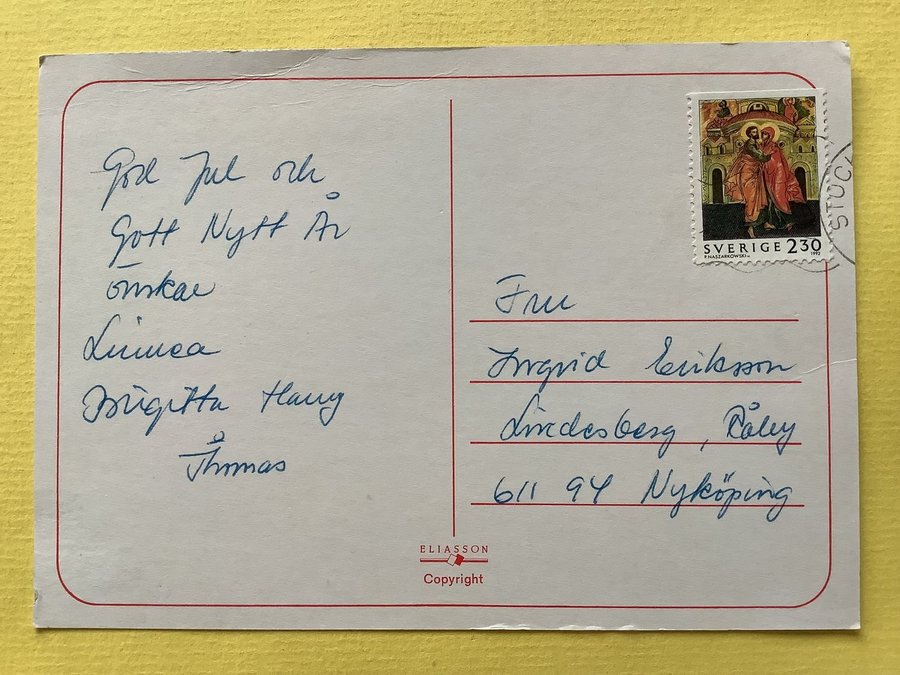 God Jul och
Gott Nytt År
önskar
Linnea
Birgitta Harry
Thomas
SVERIGE 230
P. NASZARKOWSKI sc. 1992
STOC
Fru
Ingrid Eriksson
Lindesberg, Råby
611 94 Nyköping
ELIASSON
Copyright